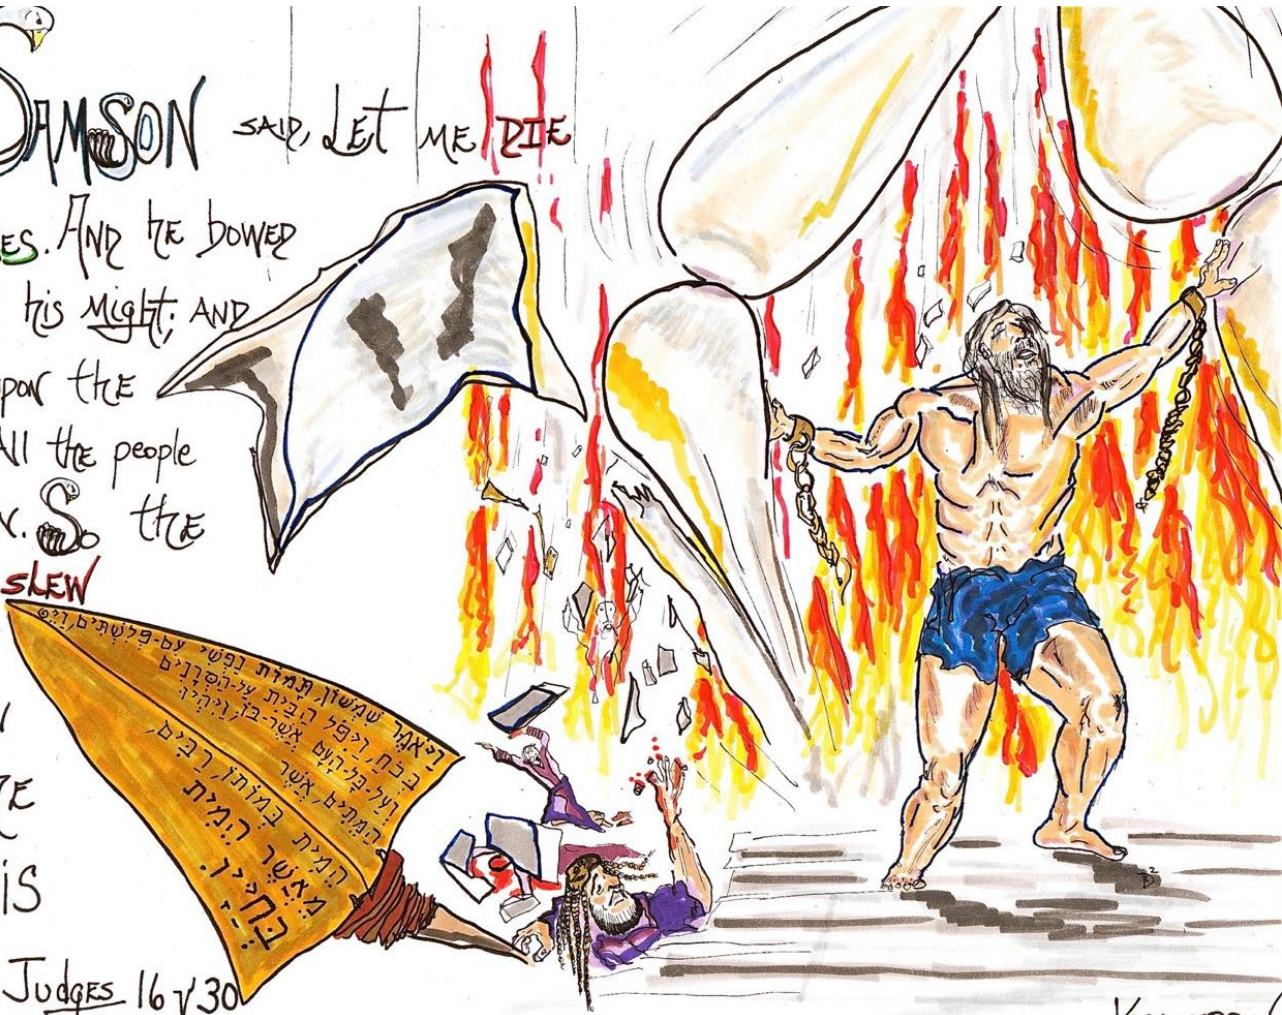 SAMSON SAID, LET ME DIE
ES. AND HE BOWED
his Might; AND
pon the
All the people
N. So the
SLEW
וַיֹּאמֶר שִׁמְשׁוֹן תָּמוֹת נַפְשִׁי עִם-פְּלִשְׁתִּים, וַיֵּט
בְּכֹחַ, וַיִּפֹּל הַבַּיִת עַל-הַסְּרָנִים
וְעַל-כָּל-הָעָם אֲשֶׁר-בּוֹ; וַיִּהְיוּ
הַמֵּתִים, אֲשֶׁר
הֵמִית בְּמוֹתוֹ, רַבִּים,
מֵאֲשֶׁר הֵמִית
בְּחַיָּיו.
is
Judges 16 v 30